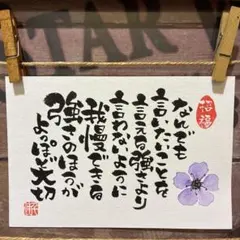 なんでも
言いたいことを
言える強さより
言わないように
我慢できる
強さのほうが
よっぽど大切
招福